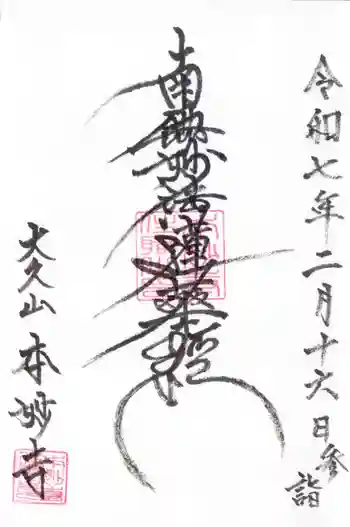 令和七年二月十六日参詣
南無妙法蓮華経
大久山本妙寺